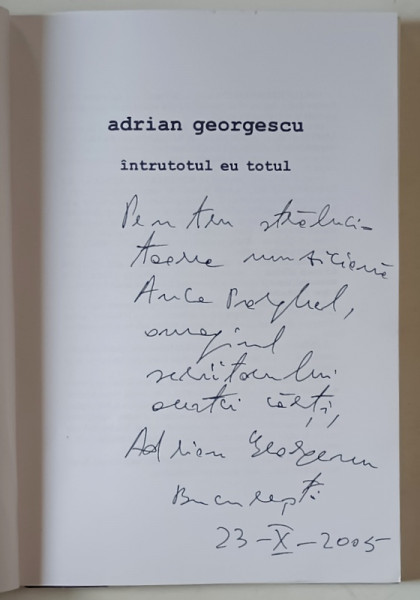 adrian georgescu
întrutotul eu totul
Pentru străluci-
toarea muziciană
Anca
omagiul
scriitorului
acestei cărți,
Adrian Georgescu
București
23-X-2005